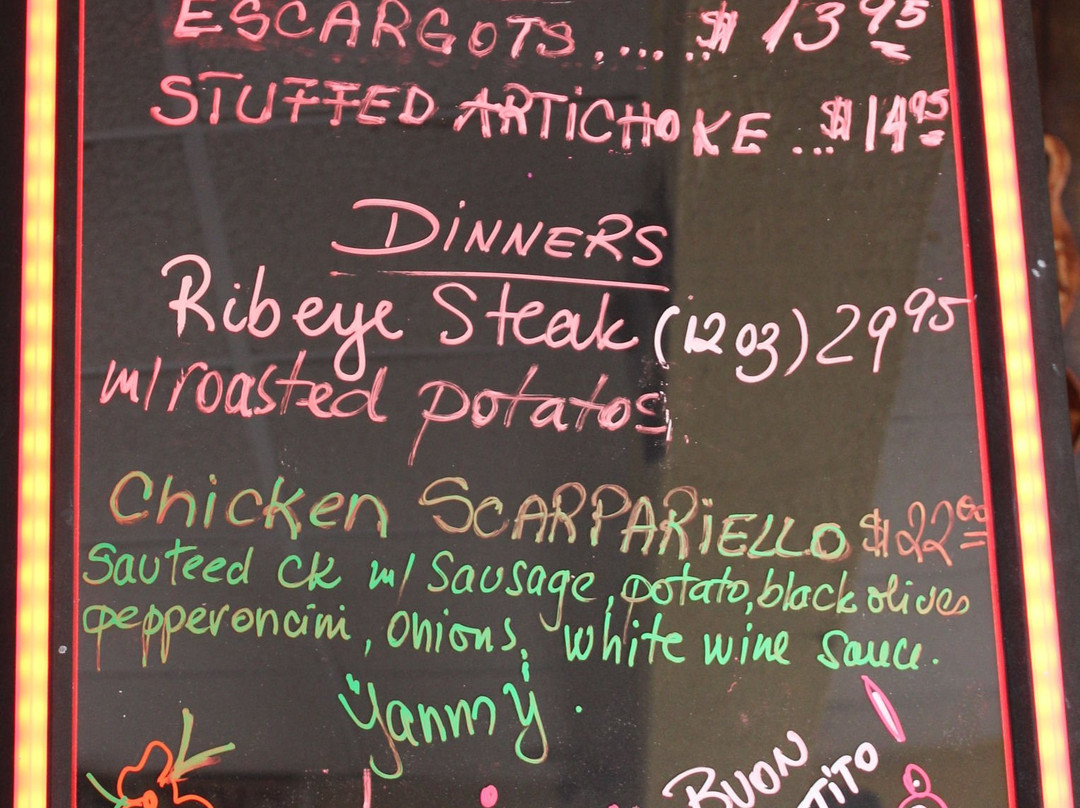 ESCARGOTS..... $ 13 95
STUFFED ARTICHOKE ...$14 95
DINNERS
Ribeye Steak (12 oz) 29 95
w/ roasted potatos
Chicken SCARPARIELLO $22 00
Sauteed ck w/ Sausage, potato, black olives
pepperoncini, onions, white wine sauce.
"Yammy".
BUON